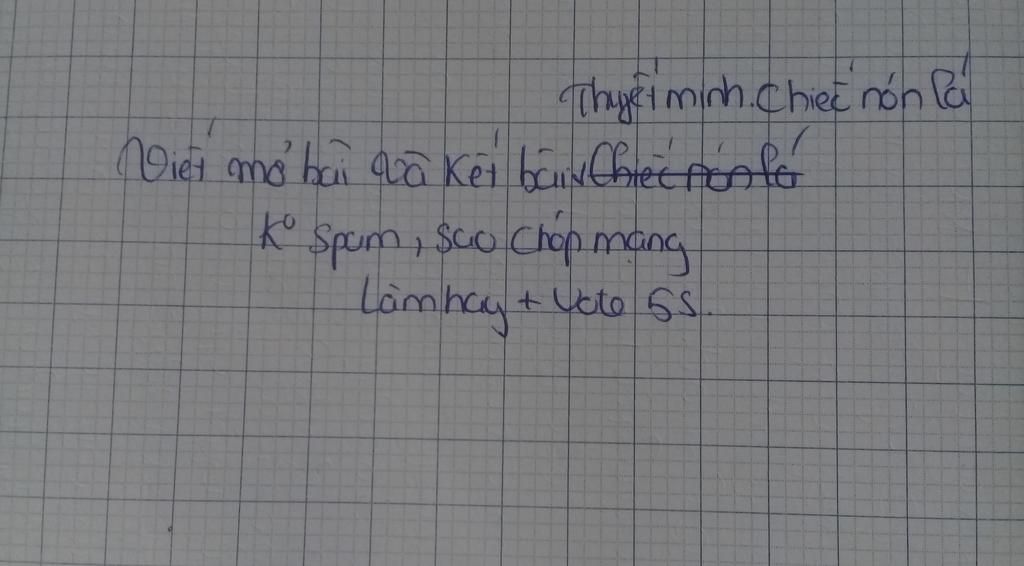 Thuyết minh chiếc nón lá
Viết mở bài và kết bài chiếc nón lá
K° spam, sao chép mạng
Làm hay + vote 5s.